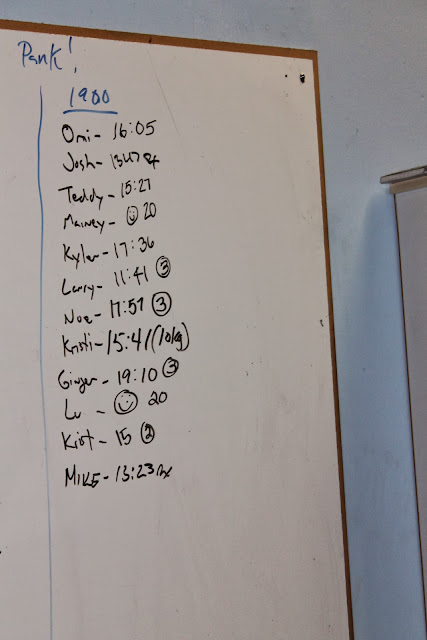 Pank!
1900
Omi - 16:05
Josh - 13:47 Rx
Teddy - 15:27
Mainey - ☺ 20
Kyler - 17:36
Larry - 11:41 ③
Noe - 17:57 ③
Kristi - 15:41 (10kg)
Ginger - 19:10 ③
Lu - ☺ 20
Kiat - 15 ②
MIKE - 13:23 Rx